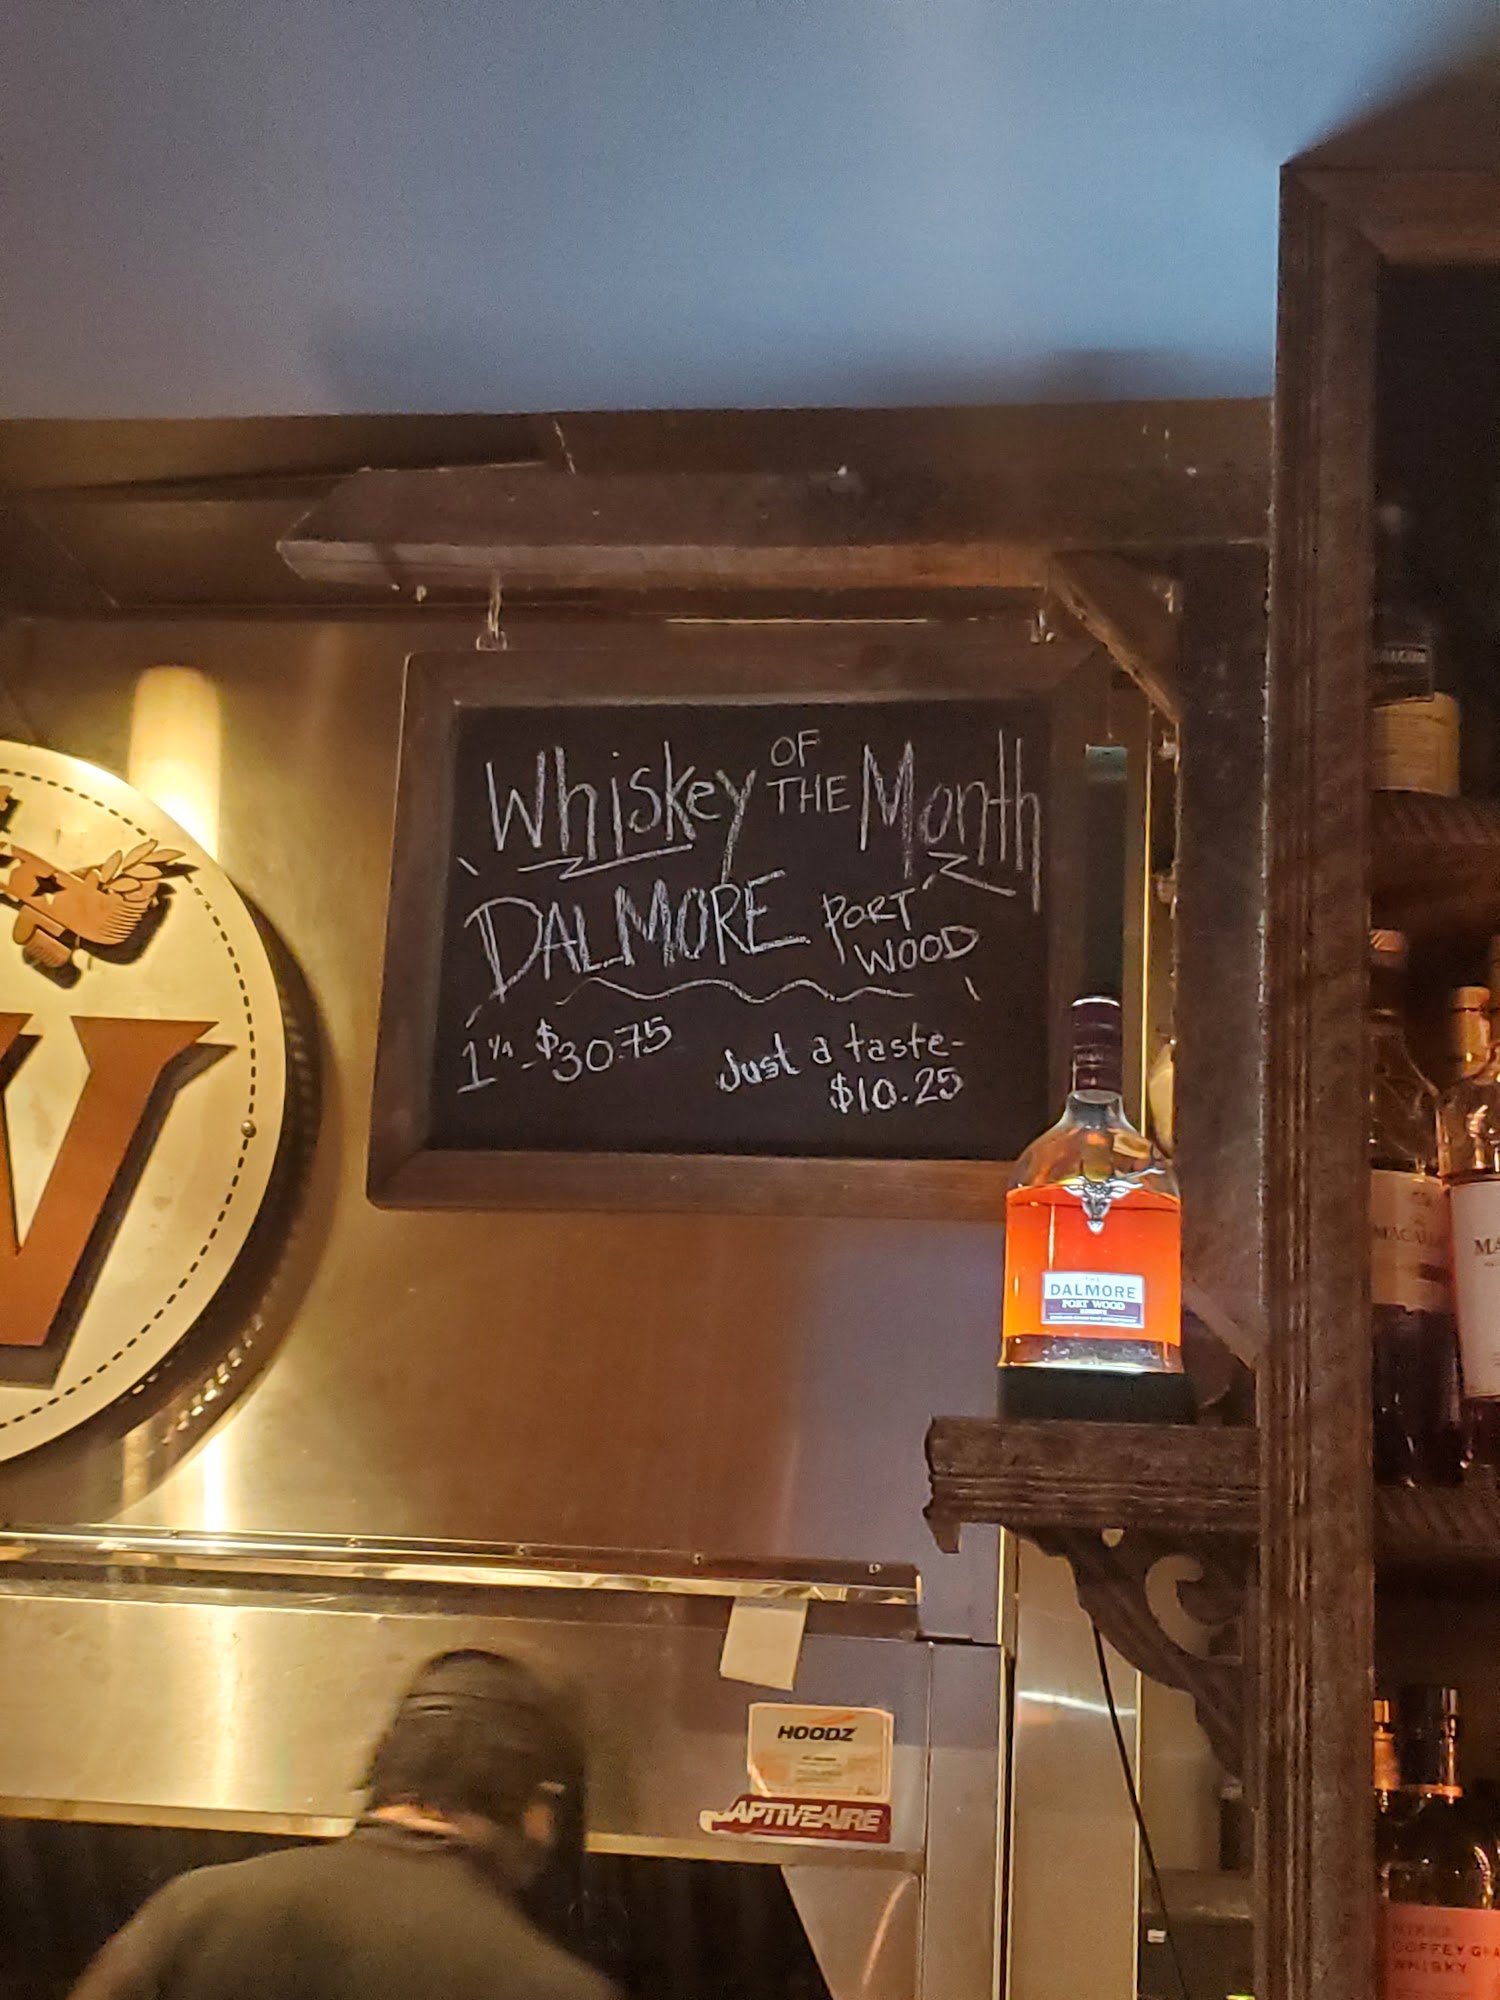 Whiskey OF THE Month
DALMORE PORT WOOD
1 1/4 - $30.75
Just a taste-
$10.25
THE
DALMORE
PORT WOOD
RESERVE
W
HOODZ
CAPTIVEAIRE
MACALLAN
MA
COFFEY GRA
WHISKY